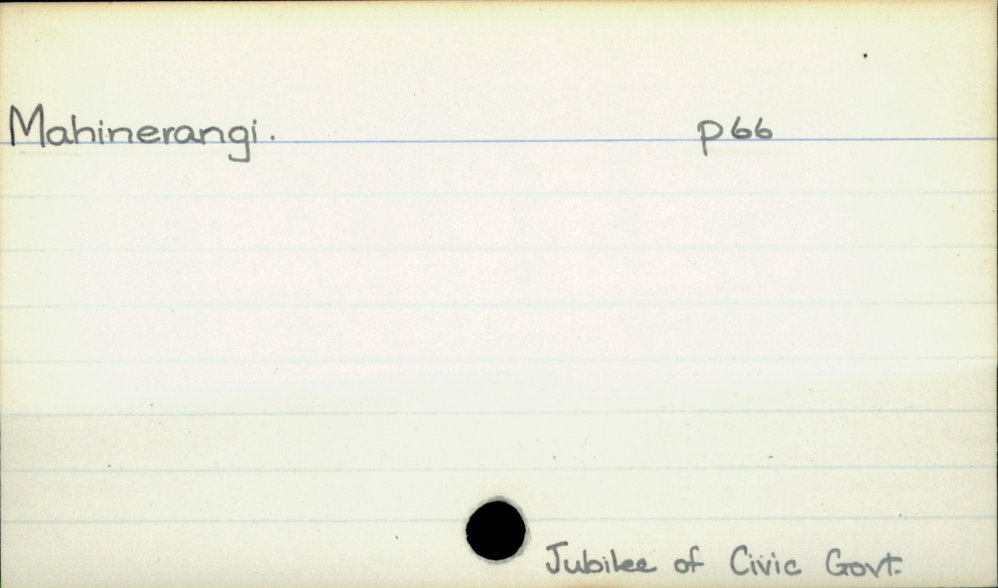 Mahinerangi. p66
Jubilee of Civic Govt.